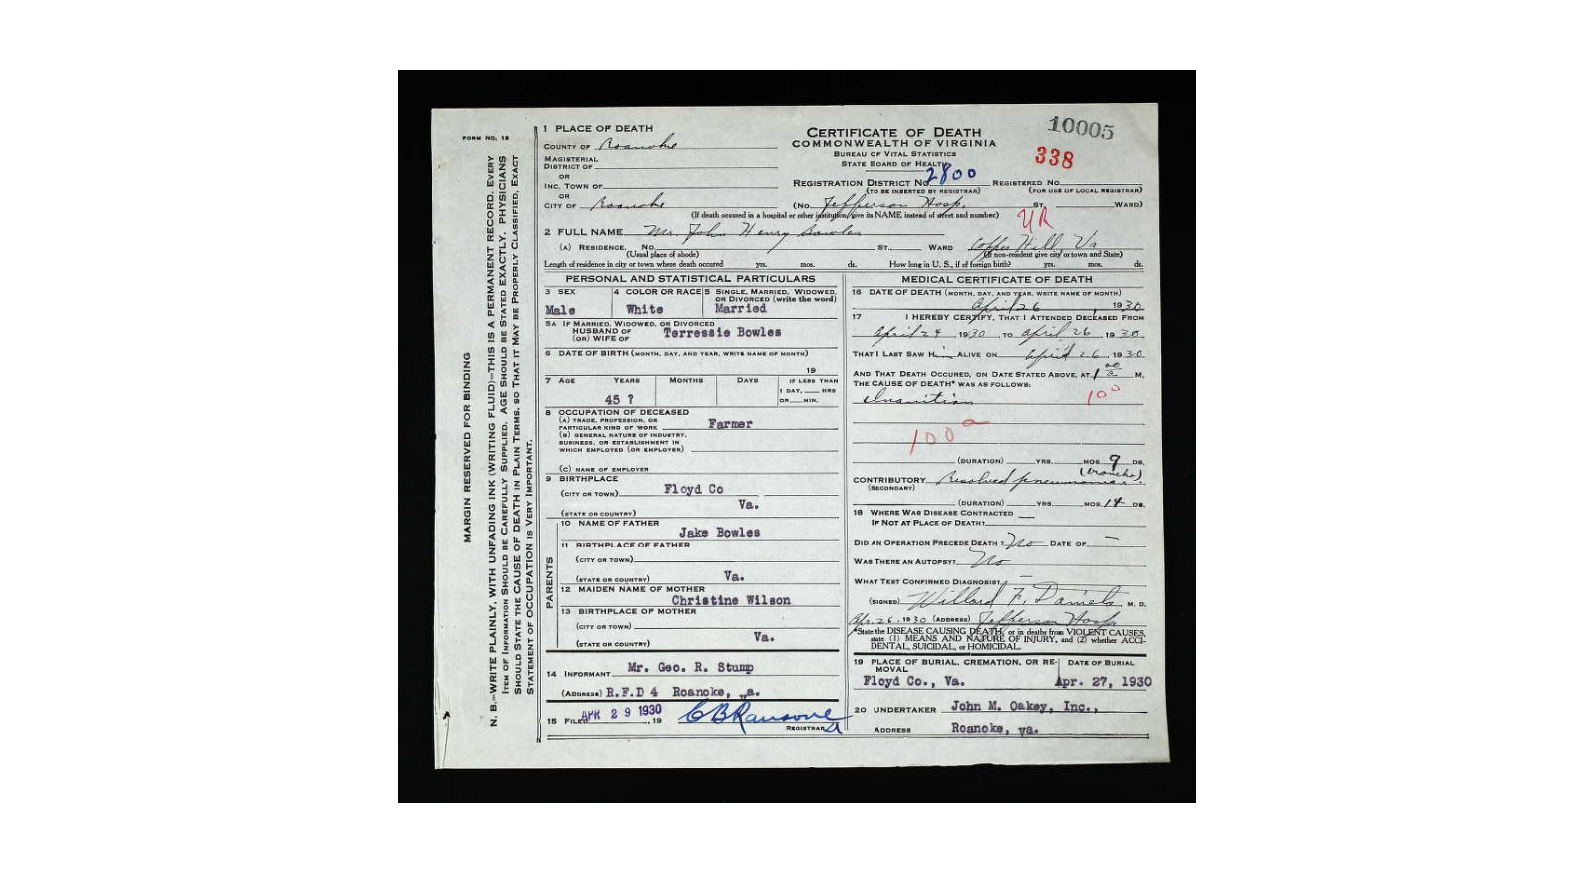 FORM NO. 18
MARGIN RESERVED FOR BINDING
N. B.—WRITE PLAINLY, WITH UNFADING INK (WRITING FLUID)—THIS IS A PERMANENT RECORD. EVERY
ITEM OF INFORMATION SHOULD BE CAREFULLY SUPPLIED. AGE SHOULD BE STATED EXACTLY. PHYSICIANS
SHOULD STATE THE CAUSE OF DEATH IN PLAIN TERMS, SO THAT IT MAY BE PROPERLY CLASSIFIED, EXACT
STATEMENT OF OCCUPATION IS VERY IMPORTANT.
1 PLACE OF DEATH
COUNTY OF Roanoke
MAGISTERIAL
DISTRICT OF
OR
INC. TOWN OF
OR
CITY OF Roanoke
CERTIFICATE OF DEATH
COMMONWEALTH OF VIRGINIA
BUREAU OF VITAL STATISTICS
STATE BOARD OF HEALTH
10005
338
REGISTRATION DISTRICT NO. 2800 REGISTERED NO.
(TO BE INSERTED BY REGISTRAR) (FOR USE OF LOCAL REGISTRAR)
(No. Jefferson Hosp. ST. WARD)
(If death occured in a hospital or other institution, give its NAME instead of street and number)
UR
2 FULL NAME Mr. John Henry Bowles
(A) RESIDENCE. No. ST., WARD Copper Hill Va
(Usual place of abode) (If non-resident give city or town and State)
Length of residence in city or town where death occured yrs. mos. ds. How long in U. S., if of foreign birth? yrs. mos. ds.
PERSONAL AND STATISTICAL PARTICULARS
3 SEX 4 COLOR OR RACE 5 SINGLE, MARRIED, WIDOWED,
OR DIVORCED (write the word)
Male White Married
5A IF MARRIED, WIDOWED, OR DIVORCED
HUSBAND OF
(OR) WIFE OF Terressie Bowles
6 DATE OF BIRTH (MONTH, DAY, AND YEAR, WRITE NAME OF MONTH)
19
7 AGE YEARS MONTHS DAYS IF LESS THAN
1 DAY, HRS
OR MIN.
45 ?
8 OCCUPATION OF DECEASED
(A) TRADE, PROFESSION, OR
PARTICULAR KIND OF WORK Farmer
(B) GENERAL NATURE OF INDUSTRY,
BUSINESS, OR ESTABLISHMENT IN
WHICH EMPLOYED (OR EMPLOYER)
(C) NAME OF EMPLOYER
9 BIRTHPLACE
(CITY OR TOWN) Floyd Co
(STATE OR COUNTRY) Va.
PARENTS
10 NAME OF FATHER
Jake Bowles
11 BIRTHPLACE OF FATHER
(CITY OR TOWN)
(STATE OR COUNTRY) Va.
12 MAIDEN NAME OF MOTHER
Christine Wilson
13 BIRTHPLACE OF MOTHER
(CITY OR TOWN)
(STATE OR COUNTRY) Va.
14 INFORMANT Mr. Geo. R. Stump
(ADDRESS) R.F.D 4 Roanoke, va.
15 FILED APR 29 1930, 19 C B Ransone
REGISTRAR
MEDICAL CERTIFICATE OF DEATH
16 DATE OF DEATH (MONTH, DAY, AND YEAR, WRITE NAME OF MONTH)
April 26, 1930
17 I HEREBY CERTIFY, THAT I ATTENDED DECEASED FROM
April 24, 1930, TO April 26, 1930
THAT I LAST SAW Him ALIVE ON April 26, 1930
AND THAT DEATH OCCURED, ON DATE STATED ABOVE, AT 1 00 a M.
THE CAUSE OF DEATH* WAS AS FOLLOWS:
Inanition
100
100 a
(DURATION) YRS. MOS. 9 DS.
(broncho)
CONTRIBUTORY Resolved pneumonia
(SECONDARY)
(DURATION) YRS. MOS. 14 DS.
18 WHERE WAS DISEASE CONTRACTED
IF NOT AT PLACE OF DEATH?
DID AN OPERATION PRECEDE DEATH? No DATE OF —
WAS THERE AN AUTOPSY? No
WHAT TEST CONFIRMED DIAGNOSIS? —
(SIGNED) Willard F. Daniels, M. D.
Apr. 26, 1930 (ADDRESS) Jefferson Hosp.
*State the DISEASE CAUSING DEATH, or in deaths from VIOLENT CAUSES,
state (1) MEANS AND NATURE OF INJURY, and (2) whether ACCI-
DENTAL, SUICIDAL, or HOMICIDAL.
19 PLACE OF BURIAL, CREMATION, OR RE-
MOVAL
DATE OF BURIAL
Floyd Co., Va. Apr. 27, 1930
20 UNDERTAKER John M. Oakey, Inc.,
ADDRESS Roanoke, va.